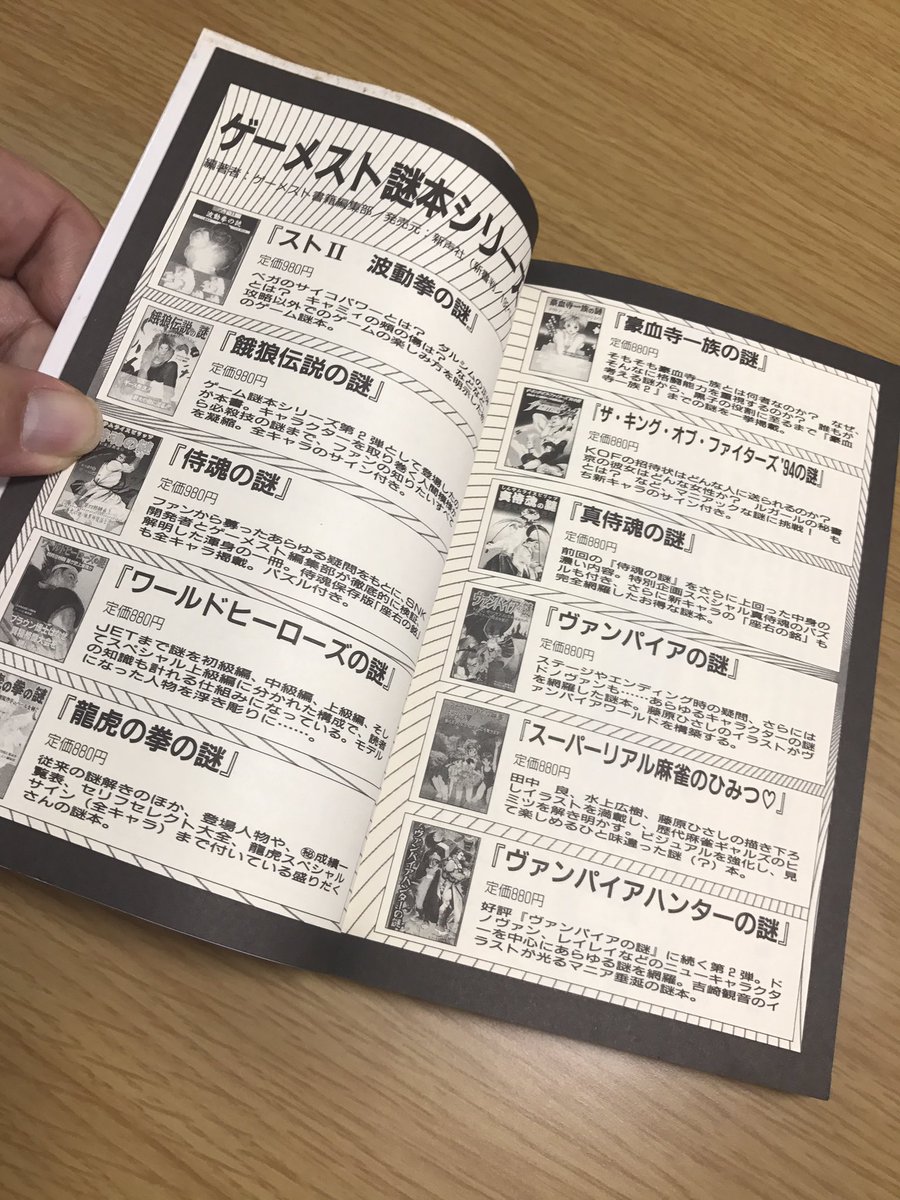 ゲーメスト謎本シリーズ
編著者:ゲーメスト書籍編集部/発売元:新声社
『ストⅡ 波動拳の謎』
定価980円
ベガのサイコパワーとは?
とは? キャミィの頬の傷は? などなど
攻略以外でのゲームの楽しみ方を明示し
のゲーム謎本。
『餓狼伝説の謎』
定価980円
ゲーム謎本シリーズ第2弾として登場したの
が本書。キャラクターを取り巻く人間構
ら必殺技の謎まで、ファンの知りたいすべ
を凝縮。全キャラのサイン付き。
『侍魂の謎』
定価980円
ファンから募ったあらゆる疑問をもとに、SNK
開発者とゲーメスト編集部が徹底的に検証。
解明した渾身の一冊。侍魂保存版「座右の銘」
も全キャラ掲載。パズル付き。
『ワールドヒーローズの謎』
定価880円
JETまで謎を初級編、中級編、上級編、そし
てスペシャル編に分かれた構成で、読者
の知識も計れる仕組みになっている。モデル
になった人物を浮き彫りに……。
『龍虎の拳の謎』
定価880円
従来の謎解きのほか、登場人物や、㊙成績一
覧表、セリフセレクト大全、龍虎スペシャル
サイン(全キャラ)まで付いている盛りだく
さんの謎本。
『豪血寺一族の謎』
定価880円
そもそも豪血寺一族とは何者なのか? なぜ、
そんなに格闘能力を重視するのか? 誰もが
考える謎から、黒子の役割に至るまで「豪血
寺一族2」までの謎を一挙掲載。
『ザ・キング・オブ・ファイターズ'94の謎』
定価880円
KOFの招待状はどんな人に送られるのか?
京の彼女はどんな女性か? ルガールの秘書
とは? など、マニアックな謎に挑戦! も
ち新キャラのサイン付き。
『真侍魂の謎』
定価880円
前回の『侍魂の謎』をさらに上回った中身の
濃い内容。特別企画スペシャル真侍魂のパズ
ルも付き、さらに新キャラの「座右の銘」も
完全網羅したお得な謎本。
『ヴァンパイアの謎』
定価880円
ステージやエンディング時の疑問、さらには
ドノヴァンも……あらゆるキャラクターの謎
を網羅した謎本。藤原ひさしのイラストがヴ
ァンパイアワールドを構築する。
『スーパーリアル麻雀のひみつ♡』
定価880円
田中 良、水上広樹、藤原ひさしの描き下ろ
しイラストを満載し、歴代麻雀ギャルズのヒ
ミツを解き明かす。ビジュアルを強化し、見
て楽しめるひと味違った謎(?)本。
『ヴァンパイアハンターの謎』
定価880円
好評『ヴァンパイアの謎』に続く第2弾。ド
ノヴァン、レイレイなどのニューキャラクタ
ーを中心にあらゆる謎を網羅。吉崎観音のイ
ラストが光るマニア垂涎の謎本。